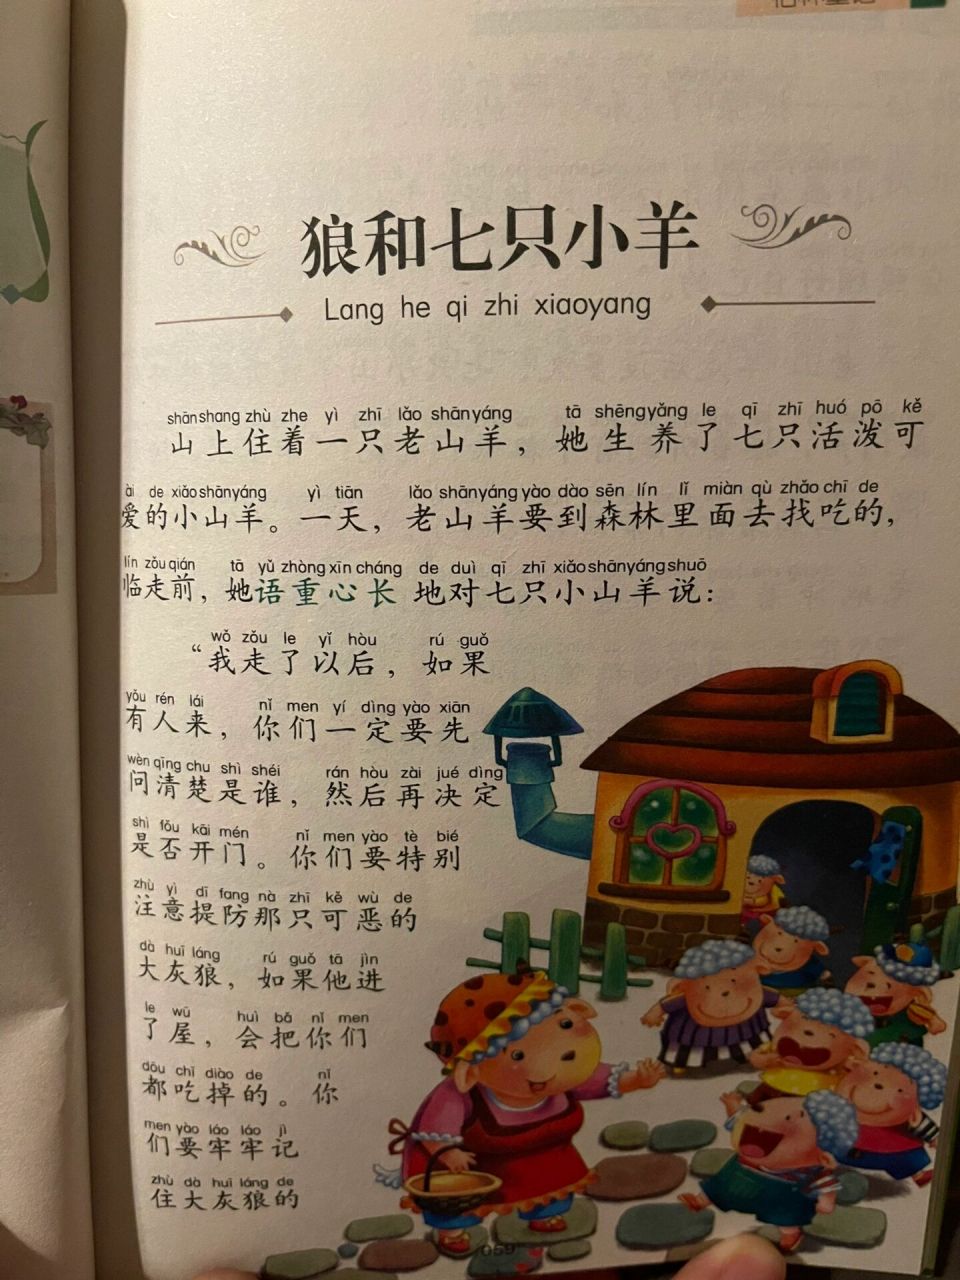 狼和七只小羊
Lang he qi zhi xiaoyang
shān shang zhù zhe yì zhī lǎo shān yáng tā shēng yǎng le qī zhī huó pō kě
山上住着一只老山羊，她生养了七只活泼可
ài de xiǎo shān yáng yì tiān lǎo shān yáng yào dào sēn lín lǐ miàn qù zhǎo chī de
爱的小山羊。一天，老山羊要到森林里面去找吃的，
lín zǒu qián tā yǔ zhòng xīn cháng de duì qī zhī xiǎo shān yáng shuō
临走前，她语重心长地对七只小山羊说：
wǒ zǒu le yǐ hòu rú guǒ
“我走了以后，如果
yǒu rén lái nǐ men yí dìng yào xiān
有人来，你们一定要先
wèn qīng chu shì shéi rán hòu zài jué dìng
问清楚是谁，然后再决定
shì fǒu kāi mén nǐ men yào tè bié
是否开门。你们要特别
zhù yì dī fang nà zhī kě wù de
注意提防那只可恶的
dà huī láng rú guǒ tā jìn
大灰狼，如果他进
le wū huì bǎ nǐ men
了屋，会把你们
dōu chī diào de nǐ
都吃掉的。你
men yào láo láo jì
们要牢牢记
zhù dà huī láng de
住大灰狼的
059